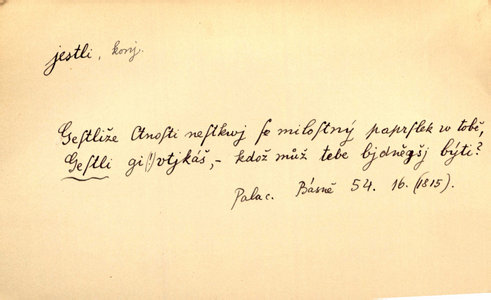 jestli, konj.
Gestliže Ctnosti neſtkwj ſe miloſtný paprſlek w tobě,
Geſtli gi(!) vtjkáš,- kdož můž tebe bjdněgšj býti?
Palac. Básně 54. 16. (1815).